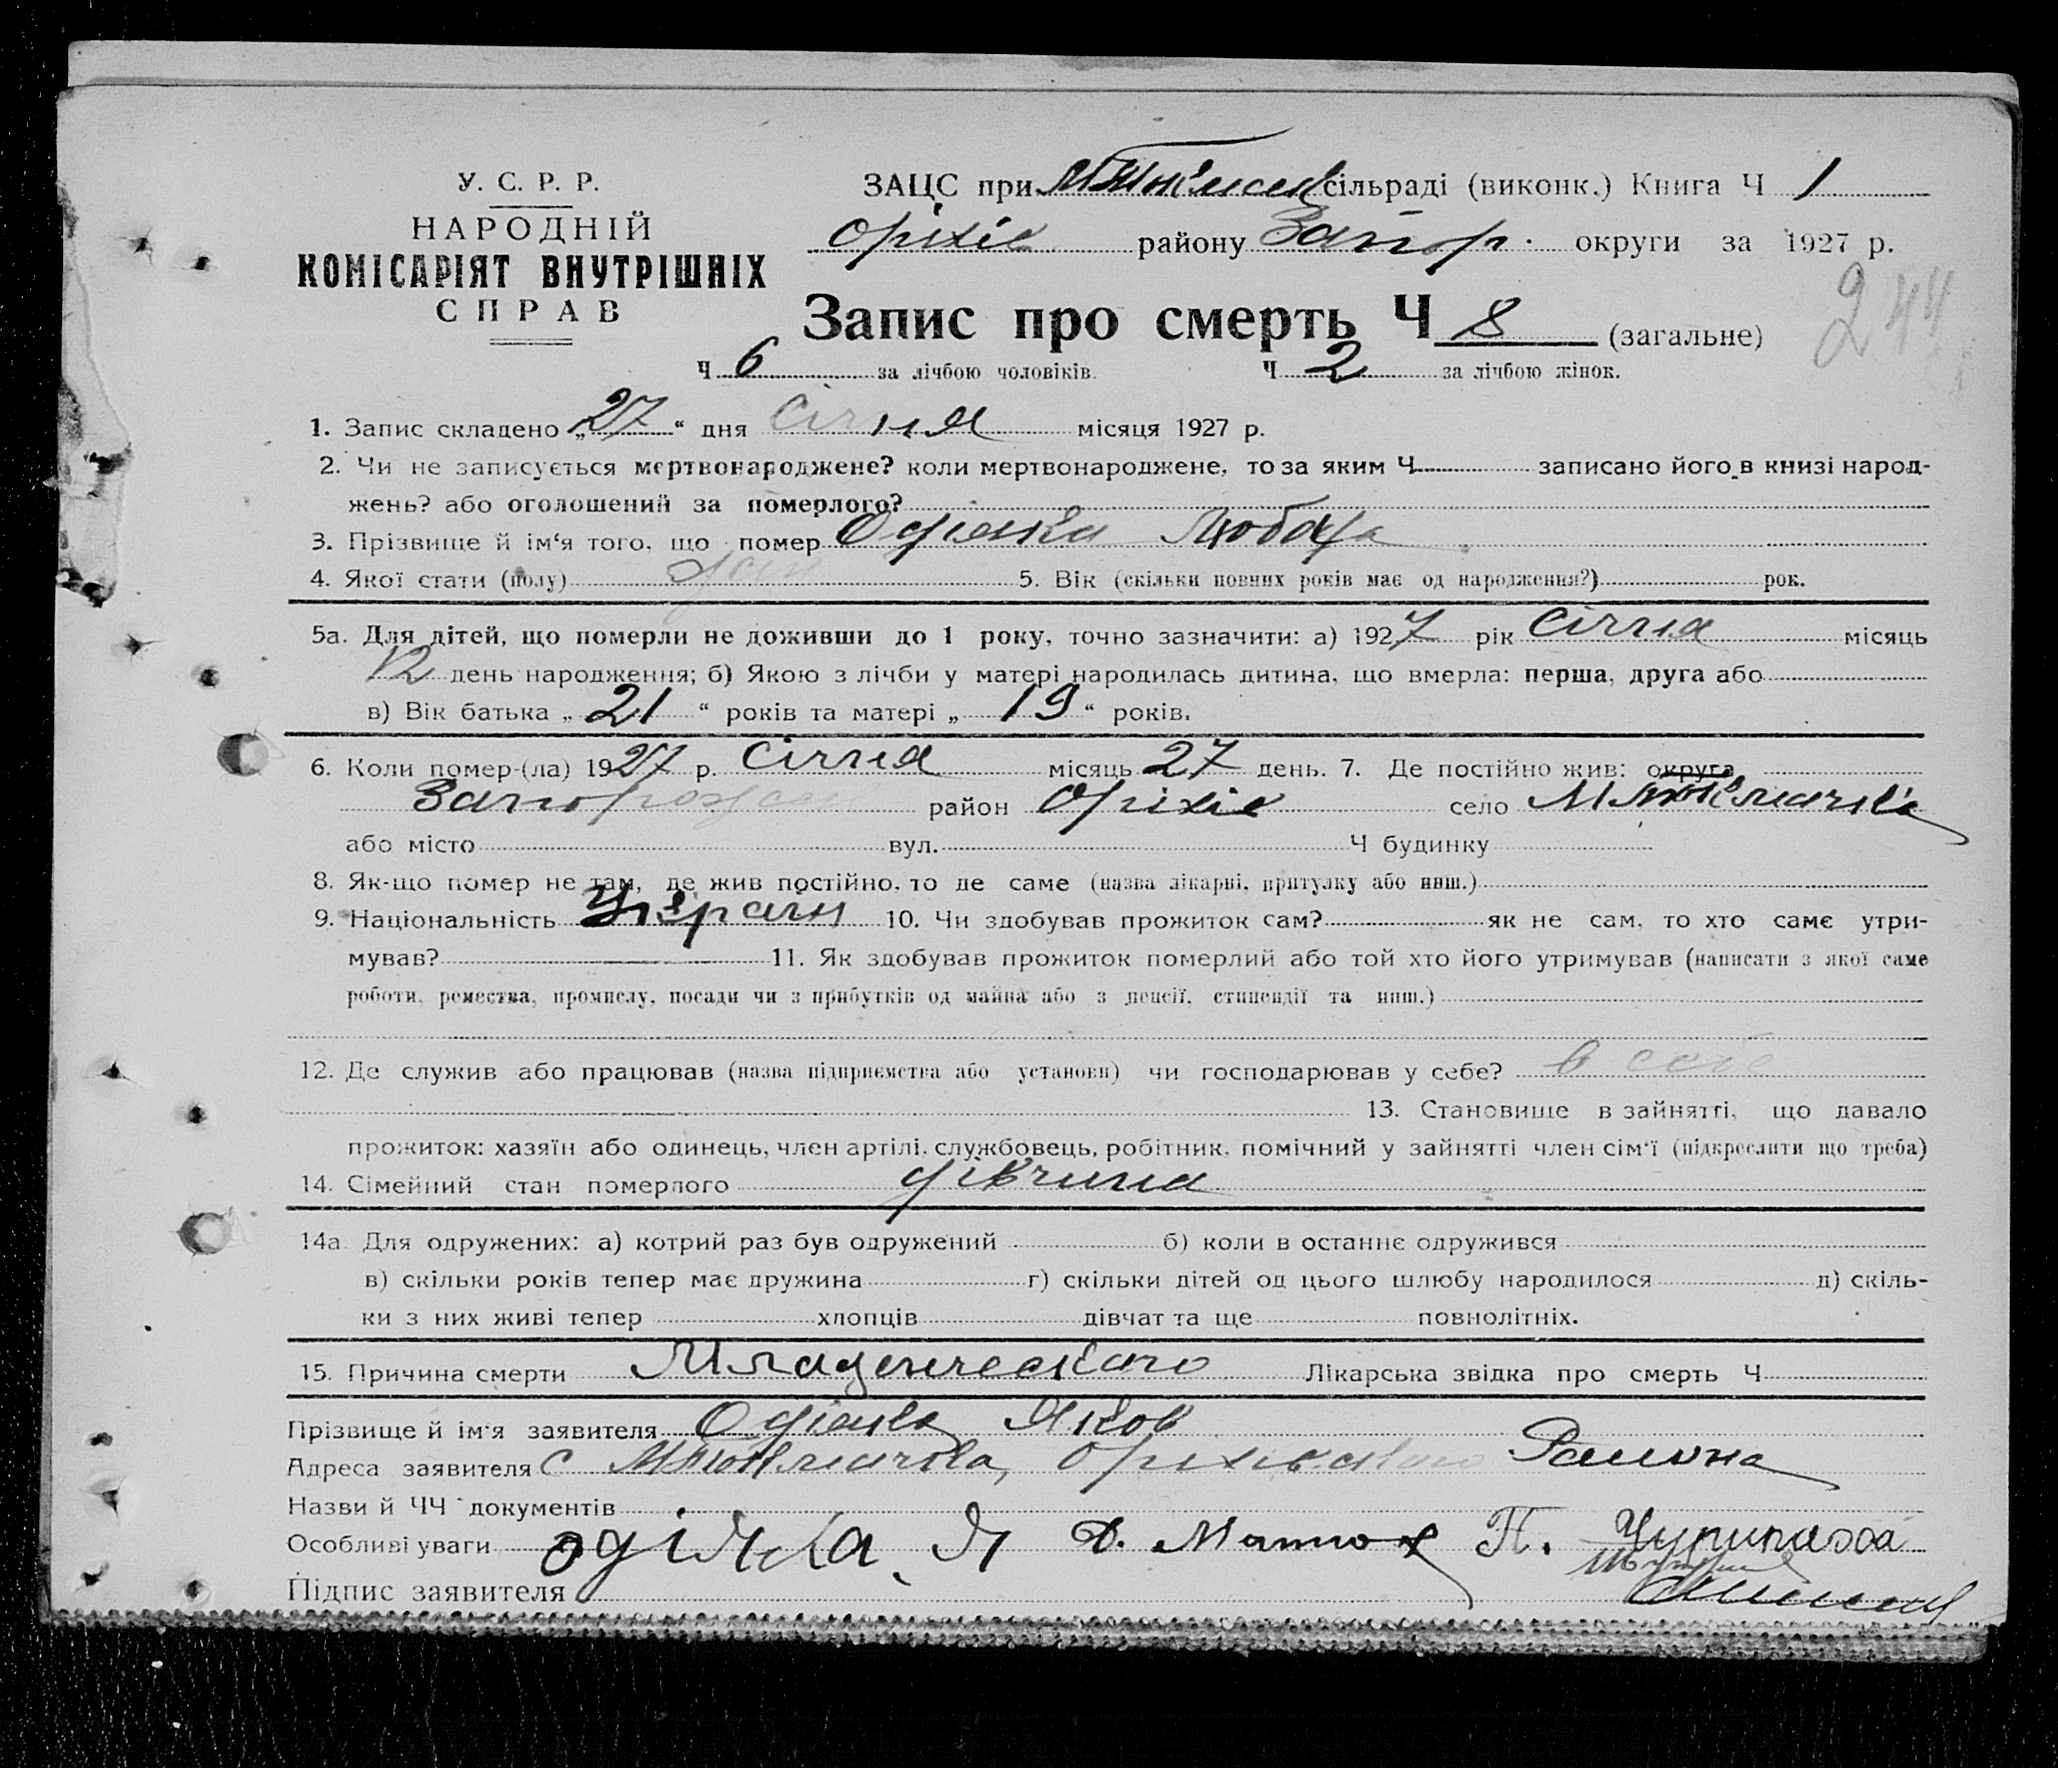 У. С. Р. Р.
НАРОДНІЙ
КОМІСАРІЯТ ВНУТРІШНІХ
СПРАВ
ЗАЦС при сільраді (виконк.) Книга Ч 1
Оріхів району Запор. округи за 1927 р.
244
Запис про смерть Ч 8 (загальне)
Ч 6 за лічбою чоловіків. Ч 2 за лічбою жінок.
1. Запис складено „27“ дня січня місяця 1927 р.
2. Чи не записується мертвонароджене? коли мертвонароджене, то за яким Ч записано його в книзі народ-
жень? або оголошений за померлого?
3. Прізвище й ім‘я того, що помер Одіянка
4. Якої стати (полу) 5. Вік (скільки повних років має од народження?) рок.
5а. Для дітей, що померли не доживши до 1 року, точно зазначити: а) 1927 рік січня місяць
12 день народження; б) Якою з лічби у матері народилась дитина, що вмерла: перша, друга або
в) Вік батька „21“ років та матері „19“ років.
6. Коли помер-(ла) 1927 р. січня місяць 27 день. 7. Де постійно жив: округа
район Оріхів село
або місто вул. Ч будинку
8. Як-що помер не там, де жив постійно, то де саме (назва лікарні, притулку або инш.)
9. Національність Україн 10. Чи здобував прожиток сам? як не сам, то хто саме утри-
мував? 11. Як здобував прожиток померлий або той хто його утримував (написати з якої саме
роботи, ремества, промислу, посади чи з прибутків од майна або з пенсії, стипендії та инш.)
12. Де служив або працював (назва підприємства або установи) чи господарював у себе? в себе
13. Становище в зайнятті, що давало
прожиток: хазяїн або одинець, член артілі, службовець, робітник, помічний у зайнятті член сім‘ї (підкреслити що треба)
14. Сімейний стан померлого дівчина
14а Для одружених: а) котрий раз був одружений б) коли в останнє одружився
в) скільки років тепер має дружина г) скільки дітей од цього шлюбу народилося д) скіль-
ки з них живі тепер хлопців дівчат та ще повнолітніх.
15. Причина смерти Младенческаго Лікарська звідка про смерть Ч
Прізвище й ім‘я заявителя Одіянка Яков
Адреса заявителя с Оріхівського Району
Назви й ЧЧ документів
Особливі уваги одіянка Я Д. Матюх П.
Підпис заявителя